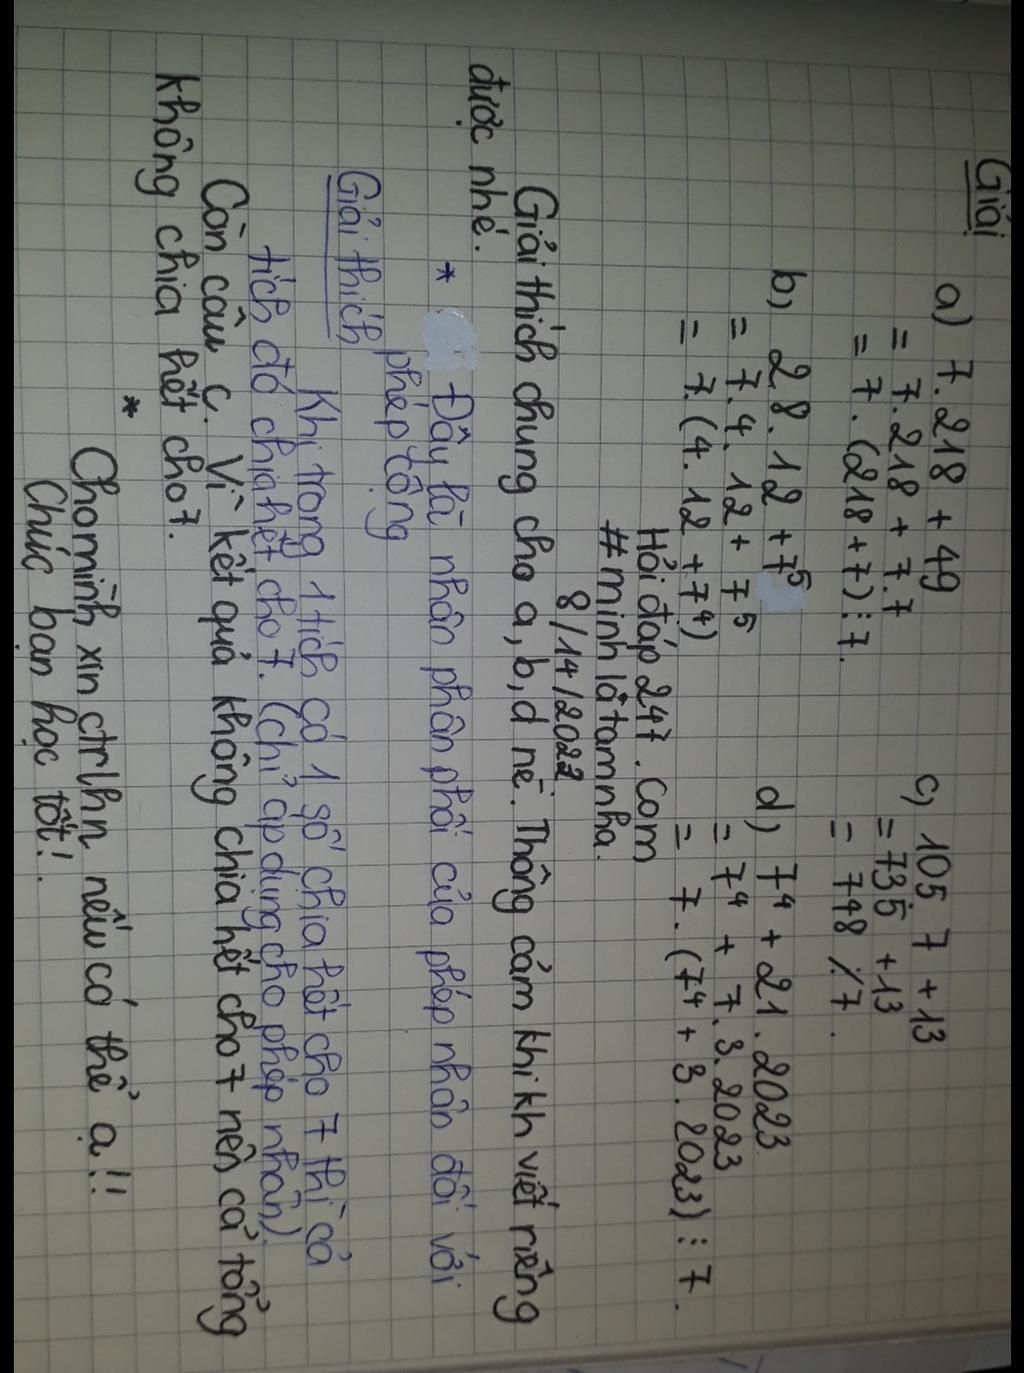 Giải
a) 7.218 + 49
= 7.218 + 7.7
= 7.(218+7)⋮7.
c) 105 7 +13
= 735 +13
= 748 ⋮̸ 7.
b) 28.12 +7⁵
= 7.4.12+ 7⁵
= 7.(4.12 +7⁴)
d) 7⁴ + 21.2023
= 7⁴ + 7.3.2023
= 7.(7⁴ + 3.2023)⋮7.
Hỏi đáp 247.com
#minh là tamnha.
8/14/2022
Giải thích chung cho a,b,d nè. Thông cảm khi kh viết riêng
được nhé.
* Đây là nhân phân phối của phép nhân đối với
phép tộng
Giải thích
Khi trong 1 tích có 1 số chia hết cho 7 thì cả
tích đó chia hết cho 7. (chỉ áp dụng cho phép nhân)
Còn câu c. Vì kết quả không chia hết cho 7 nên cả tổng
không chia hết cho 7.
* Cho mình xin ctrlhn nếu có thể ạ!!
Chúc bạn học tốt!.